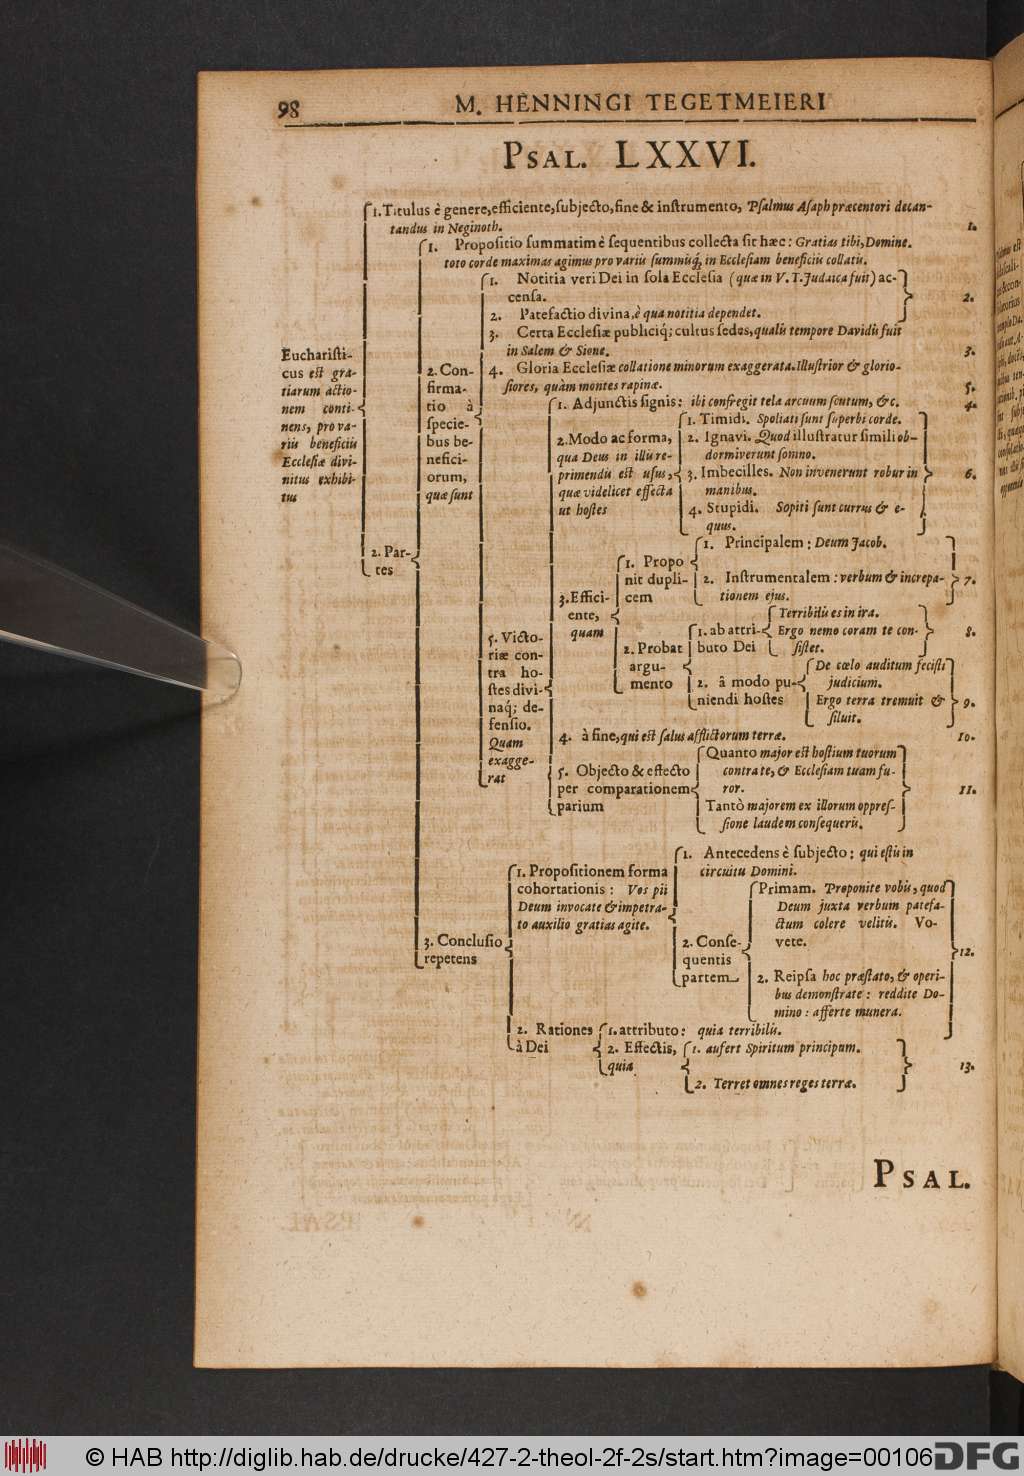 98
M. HENNINGI TEGETMEIERI
PSAL. LXXVI.
1. Titulus è genere, efficiente, subjecto, fine & instrumento, Psalmus Asaph præcentori decan-
tandus in Neginoth. 1.
1. Propositio summatim è sequentibus collecta sit hæc: Gratias tibi, Domine.
toto corde maximas agimus pro variis summisq́; in Ecclesiam beneficiis collatis.
1. Notitia veri Dei in sola Ecclesia (quæ in V. T. Judaica fuit) ac-
censa.
2.
2. Patefactio divina, è qua notitia dependet.
3. Certa Ecclesiæ publiciq́; cultus sedes, qualis tempore Davidis fuit
in Salem & Sione. 3.
4. Gloria Ecclesiæ collatione minorum exaggerata. Illustrior & glorio-
siores, quàm montes rapinæ. 5.
Euchariſti-
cus eſt gra-
tiarum actio-
nem conti-
nens, pro va-
riis beneficiis
Eccleſiæ divi-
nitus exhibi-
tus
2. Par-
tes
2. Con-
firma-
tio à
ſpecie-
bus be-
nefici-
orum,
quæ ſunt
5. Victo-
riæ con-
tra ho-
ſtes divi-
naq́; de-
fenſio.
Quam
exagge-
rat
1. Adjunctis ſignis: ibi confregit tela arcuum ſcutum, &c. 4.
2. Modo ac forma,
qua Deus in illis re-
primendis eſt uſus,
quæ videlicet effecta
ut hoſtes
1. Timidi. Spoliati ſunt ſuperbi corde.
2. Ignavi. Quod illuſtratur ſimili ob-
dormiverunt ſomno.
3. Imbecilles. Non invenerunt robur in
manibus.
6.
4. Stupidi. Sopiti ſunt currus & e-
quus.
3. Effici-
ente,
quam
1. Propo
nit dupli-
cem
1. Principalem: Deum Jacob.
2. Inſtrumentalem: verbum & increpa-
tionem ejus.
7.
2. Probat
argu-
mento
1. ab attri-
buto Dei
Terribilis es in ira.
Ergo nemo coram te con-
ſiſtet.
8.
2. â modo pu-
niendi hoſtes
De cœlo auditum feciſti
judicium.
Ergo terra tremuit &
ſiluit.
9.
4. à fine, qui eſt ſalus afflictorum terræ. 10.
5. Objecto & effecto
per comparationem
parium
Quanto major eſt hoſtium tuorum
contra te, & Eccleſiam tuam fu-
ror.
Tantò majorem ex illorum oppreſ-
ſione laudem conſequeris.
11.
3. Concluſio
repetens
1. Propoſitionem forma
cohortationis: Vos pii
Deum invocate & impetra-
to auxilio gratias agite.
1. Antecedens è ſubjecto: qui eſtis in
circuitu Domini.
2. Conſe-
quentis
partem
Primam. Proponite vobis, quod
Deum juxta verbum patefa-
ctum colere velitis. Vo-
vete.
2. Reipſa hoc præſtato, & operi-
bus demonſtrate: reddite Do-
mino: afferte munera.
12.
2. Rationes
à Dei
1. attributo: quia terribilis.
2. Effectis,
quia
1. aufert Spiritum principum.
2. Terret omnes reges terræ.
13.
PSAL.
© HAB http://diglib.hab.de/drucke/427-2-theol-2f-2s/start.htm?image=00106
DFG